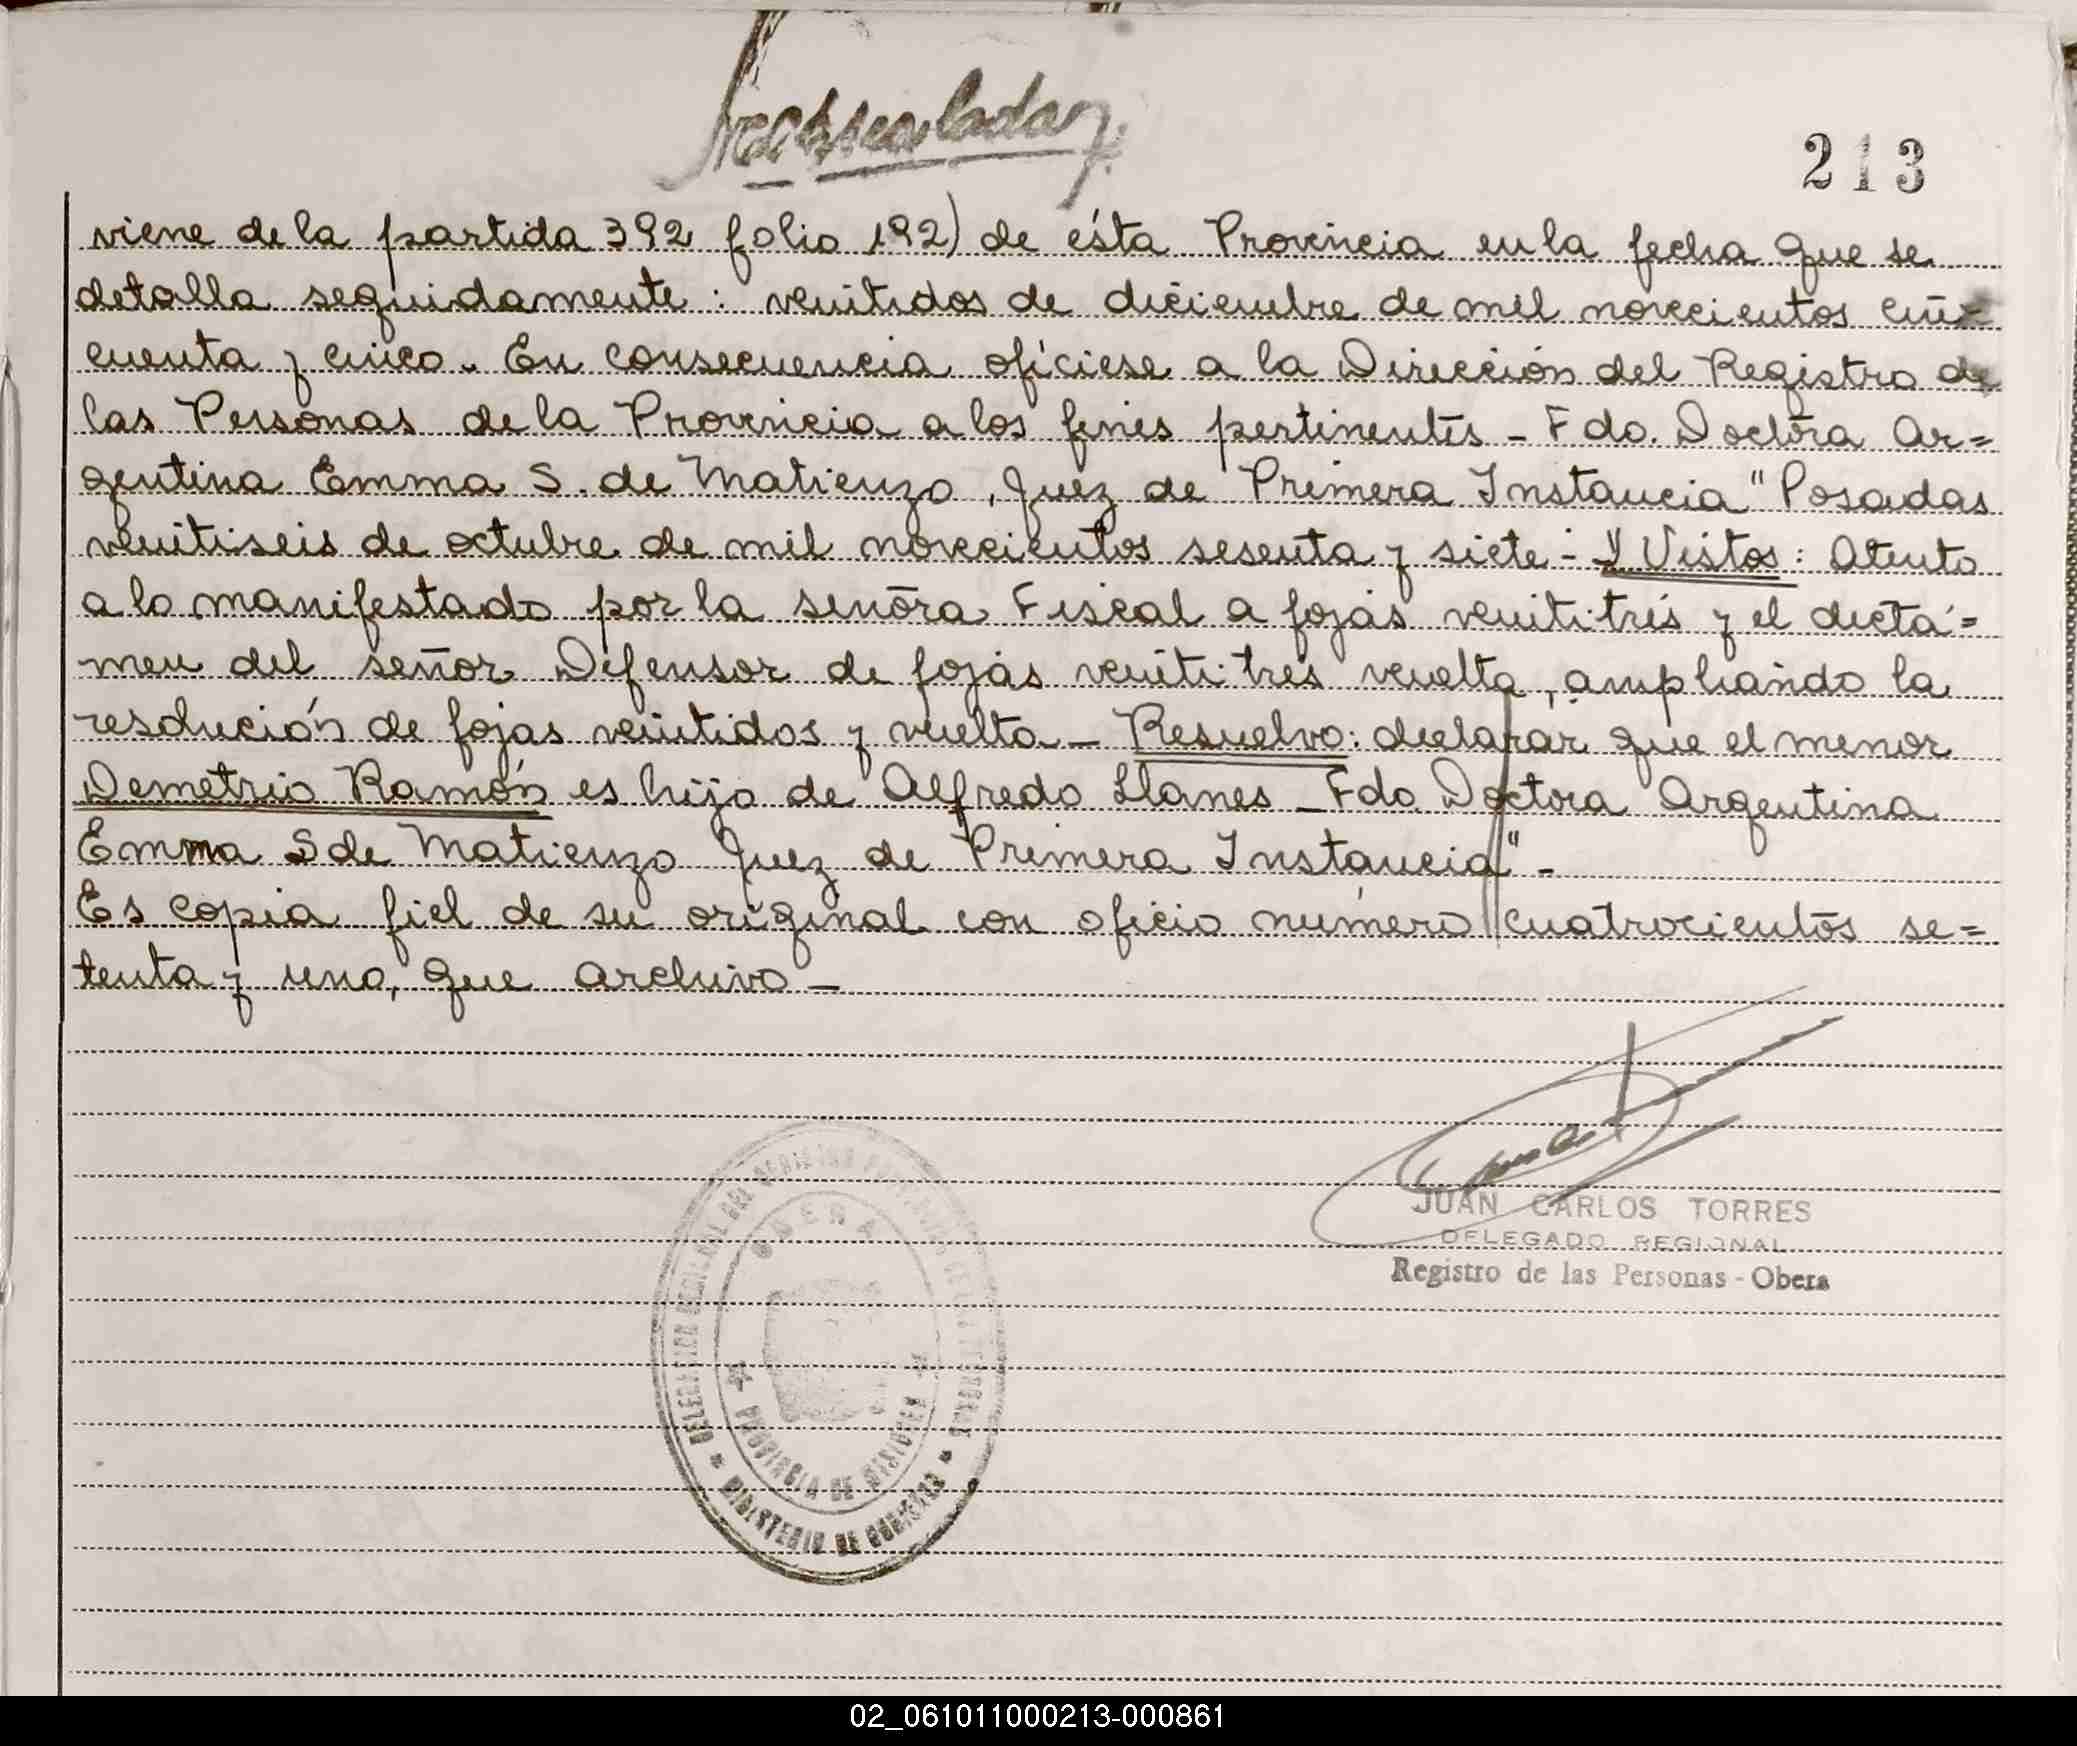 213
viene de la partida 392 folio 192) de ésta Provincia en la fecha que se
detalla seguidamente: veintidos de diciembre de mil novecientos cin-
cuenta y cinco. En consecuencia ofíciese a la Dirección del Registro de
las Personas de la Provincia a los fines pertinentes - Fdo. Doctora Ar=
gentina Emma S. de Matienzo, Juez de Primera Instancia" Posadas
veintiseis de octubre de mil novecientos sesenta y siete - Y Vistos: Atento
a lo manifestado por la señora Fiscal a fojas veintitrés y el dictá=
men del señor Defensor de fojas veintitrés vuelta, ampliando la
resolución de fojas veintidos y vuelta - Resuelvo: declarar que el menor
Demetrio Ramón es hijo de Alfredo Llanes - Fdo. Doctora Argentina
Emma S de Matienzo Juez de Primera Instancia" -
Es copia fiel de su original con oficio número cuatrocientos se=
tenta y uno, que archivo -
JUAN CARLOS TORRES
DELEGADO REGIONAL
Registro de las Personas - Obera
OBERA
PROVINCIA DE MISIONES
MINISTERIO DE GOBIERNO
02_061011000213-000861